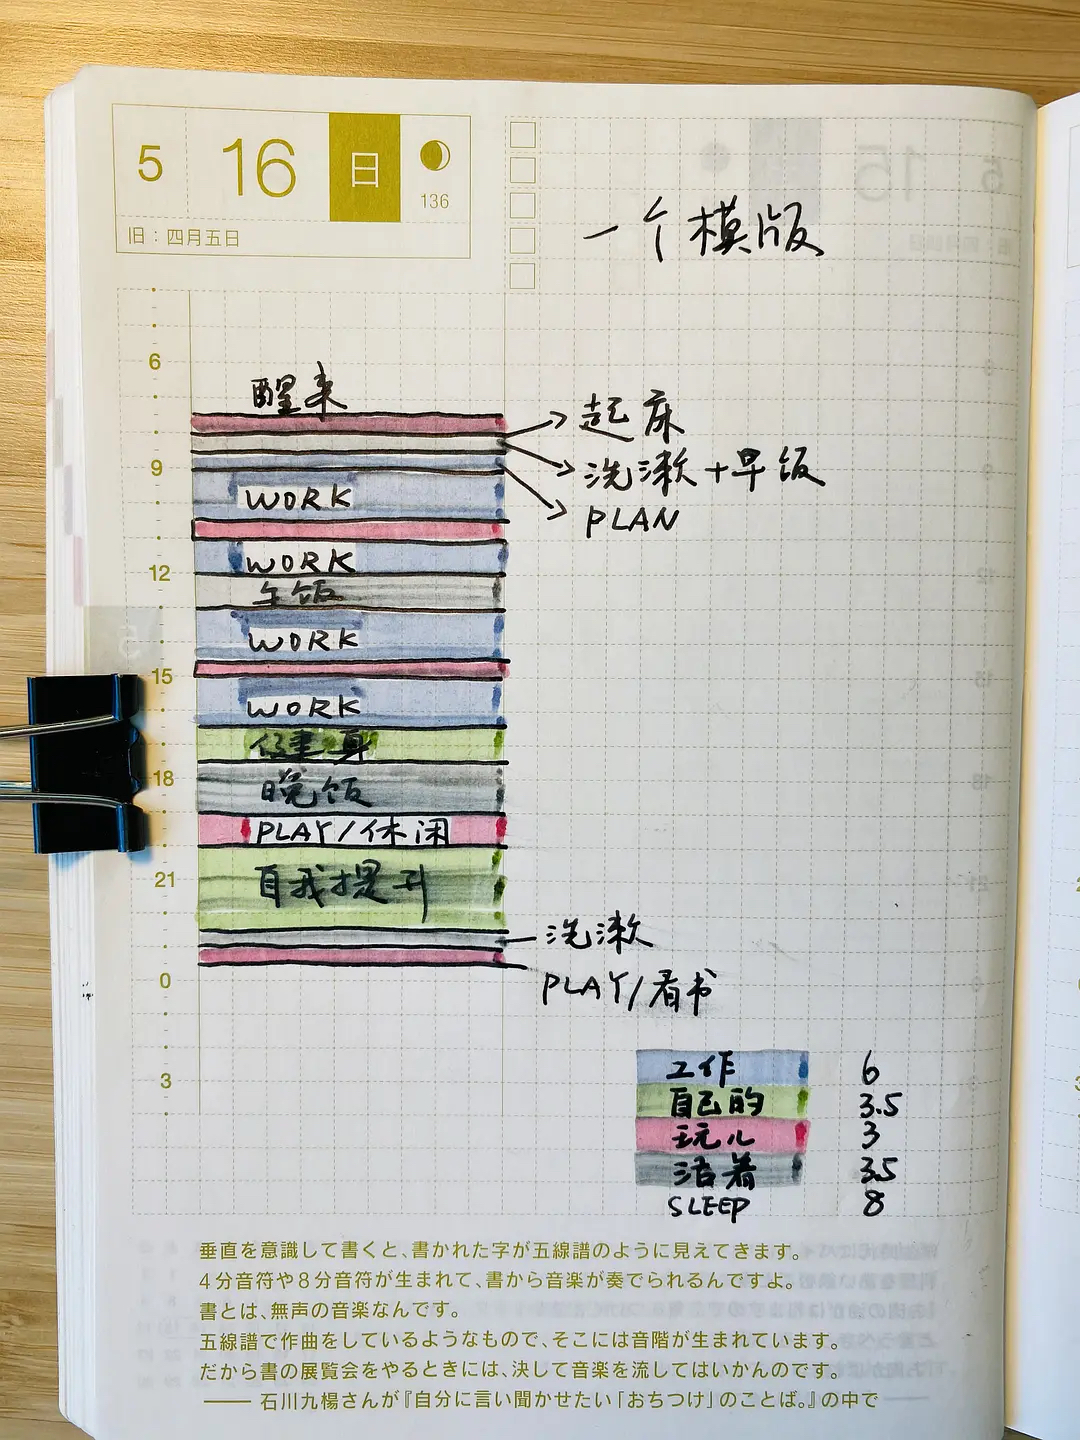 5 16 日
136
旧：四月五日
一个模版
6
醒来
起床
洗漱+早饭
9
WORK
PLAN
WORK
12
午饭
WORK
15
WORK
健身
18
晚饭
PLAY/休闲
21
自我提升
洗漱
0
PLAY/看书
3
工作 6
自己的 3.5
玩儿 3
活着 3.5
SLEEP 8
垂直を意識して書くと、書かれた字が五線譜のように見えてきます。
4分音符や8分音符が生まれて、書から音楽が奏でられるんですよ。
書とは、無声の音楽なんです。
五線譜で作曲をしているようなもので、そこには音階が生まれています。
だから書の展覧会をやるときには、決して音楽を流してはいかんのです。
―― 石川九楊さんが『自分に言い聞かせたい「おちつけ」のことば。』の中で ――